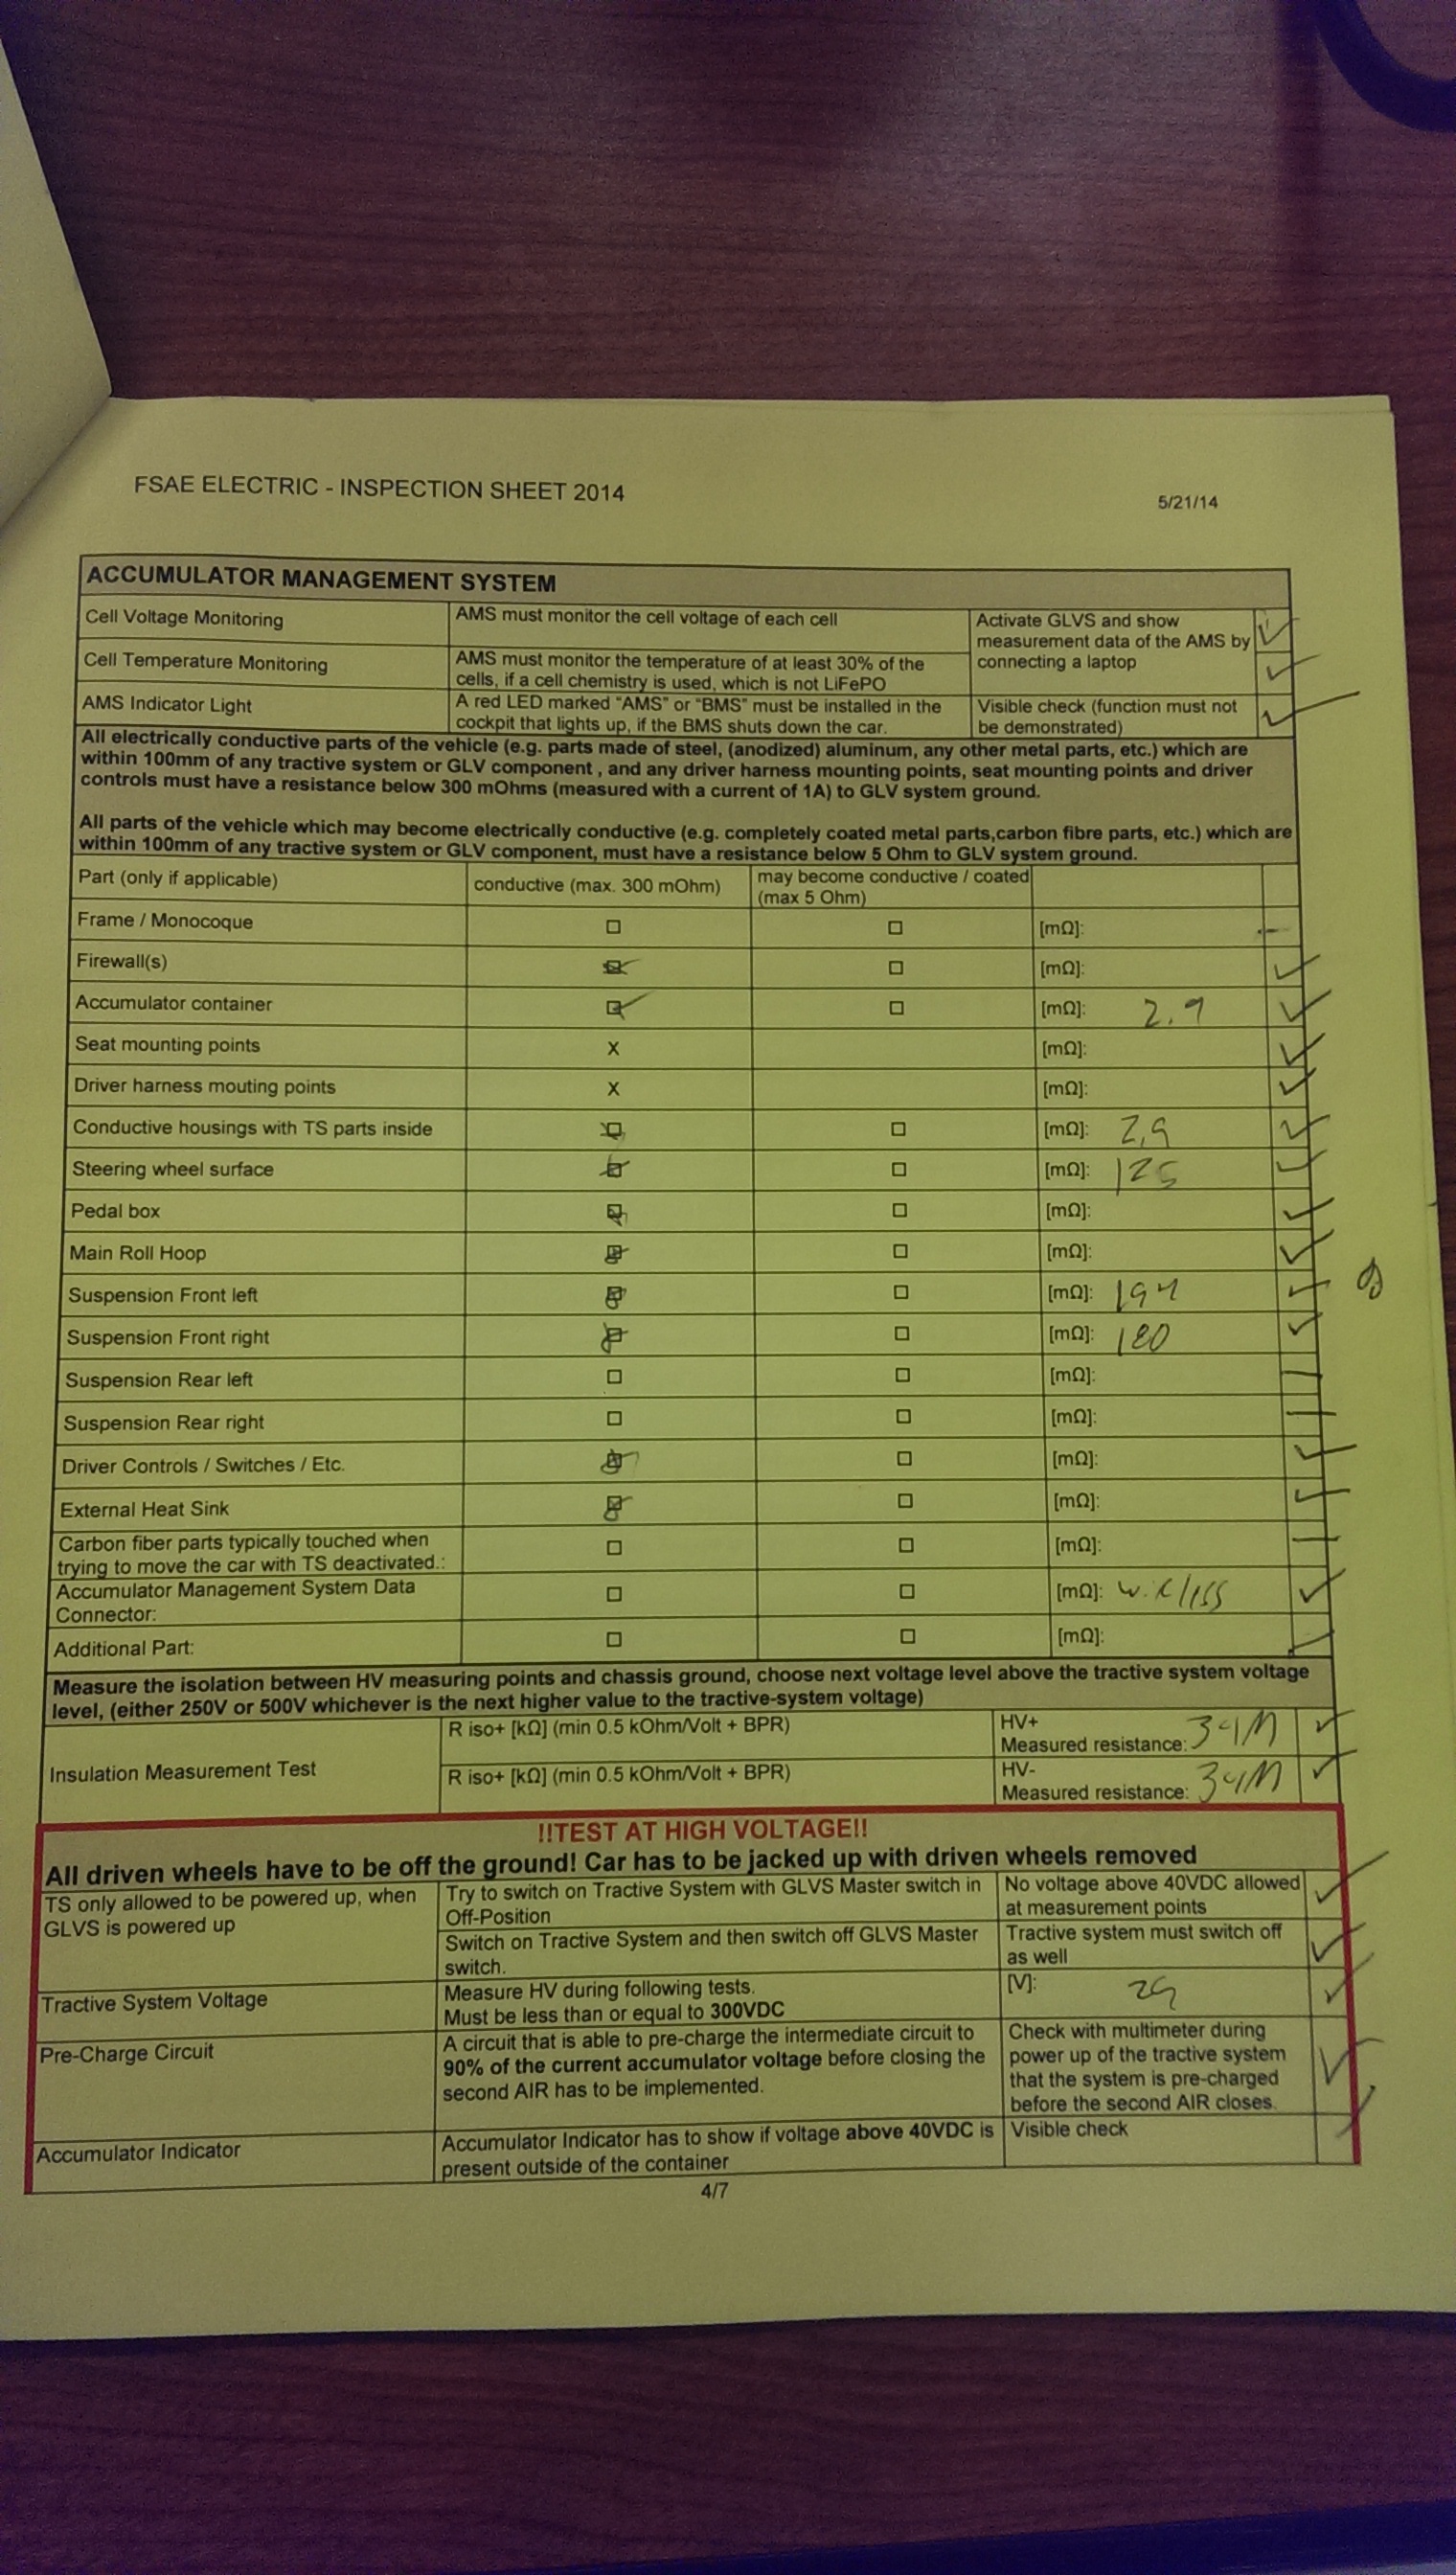 FSAE ELECTRIC - INSPECTION SHEET 2014
5/21/14
ACCUMULATOR MANAGEMENT SYSTEM
Cell Voltage Monitoring
AMS must monitor the cell voltage of each cell
Activate GLVS and show
measurement data of the AMS by
connecting a laptop
Cell Temperature Monitoring
AMS must monitor the temperature of at least 30% of the
cells, if a cell chemistry is used, which is not LiFePO
AMS Indicator Light
A red LED marked "AMS" or "BMS" must be installed in the
cockpit that lights up, if the BMS shuts down the car.
Visible check (function must not
be demonstrated)
All electrically conductive parts of the vehicle (e.g. parts made of steel, (anodized) aluminum, any other metal parts, etc.) which are
within 100mm of any tractive system or GLV component , and any driver harness mounting points, seat mounting points and driver
controls must have a resistance below 300 mOhms (measured with a current of 1A) to GLV system ground.
All parts of the vehicle which may become electrically conductive (e.g. completely coated metal parts,carbon fibre parts, etc.) which are
within 100mm of any tractive system or GLV component, must have a resistance below 5 Ohm to GLV system ground.
Part (only if applicable)
conductive (max. 300 mOhm)
may become conductive / coated
(max 5 Ohm)
Frame / Monocoque
[mΩ]:
Firewall(s)
[mΩ]:
Accumulator container
[mΩ]: 2.9
Seat mounting points
X
[mΩ]:
Driver harness mouting points
X
[mΩ]:
Conductive housings with TS parts inside
[mΩ]: 2,9
Steering wheel surface
[mΩ]: 125
Pedal box
[mΩ]:
Main Roll Hoop
[mΩ]:
Suspension Front left
[mΩ]: 194
Suspension Front right
[mΩ]: 180
Suspension Rear left
[mΩ]:
Suspension Rear right
[mΩ]:
Driver Controls / Switches / Etc.
[mΩ]:
External Heat Sink
[mΩ]:
Carbon fiber parts typically touched when
trying to move the car with TS deactivated.:
[mΩ]:
Accumulator Management System Data
Connector:
[mΩ]:
Additional Part:
[mΩ]:
Measure the isolation between HV measuring points and chassis ground, choose next voltage level above the tractive system voltage
level, (either 250V or 500V whichever is the next higher value to the tractive-system voltage)
Insulation Measurement Test
R iso+ [kΩ] (min 0.5 kOhm/Volt + BPR)
HV+
Measured resistance:
R iso+ [kΩ] (min 0.5 kOhm/Volt + BPR)
HV-
Measured resistance:
!!TEST AT HIGH VOLTAGE!!
All driven wheels have to be off the ground! Car has to be jacked up with driven wheels removed
TS only allowed to be powered up, when
GLVS is powered up
Try to switch on Tractive System with GLVS Master switch in
Off-Position
No voltage above 40VDC allowed
at measurement points
Switch on Tractive System and then switch off GLVS Master
switch.
Tractive system must switch off
as well
Tractive System Voltage
Measure HV during following tests.
Must be less than or equal to 300VDC
[V]:
Pre-Charge Circuit
A circuit that is able to pre-charge the intermediate circuit to
90% of the current accumulator voltage before closing the
second AIR has to be implemented.
Check with multimeter during
power up of the tractive system
that the system is pre-charged
before the second AIR closes.
Accumulator Indicator
Accumulator Indicator has to show if voltage above 40VDC is
present outside of the container
Visible check
4/7